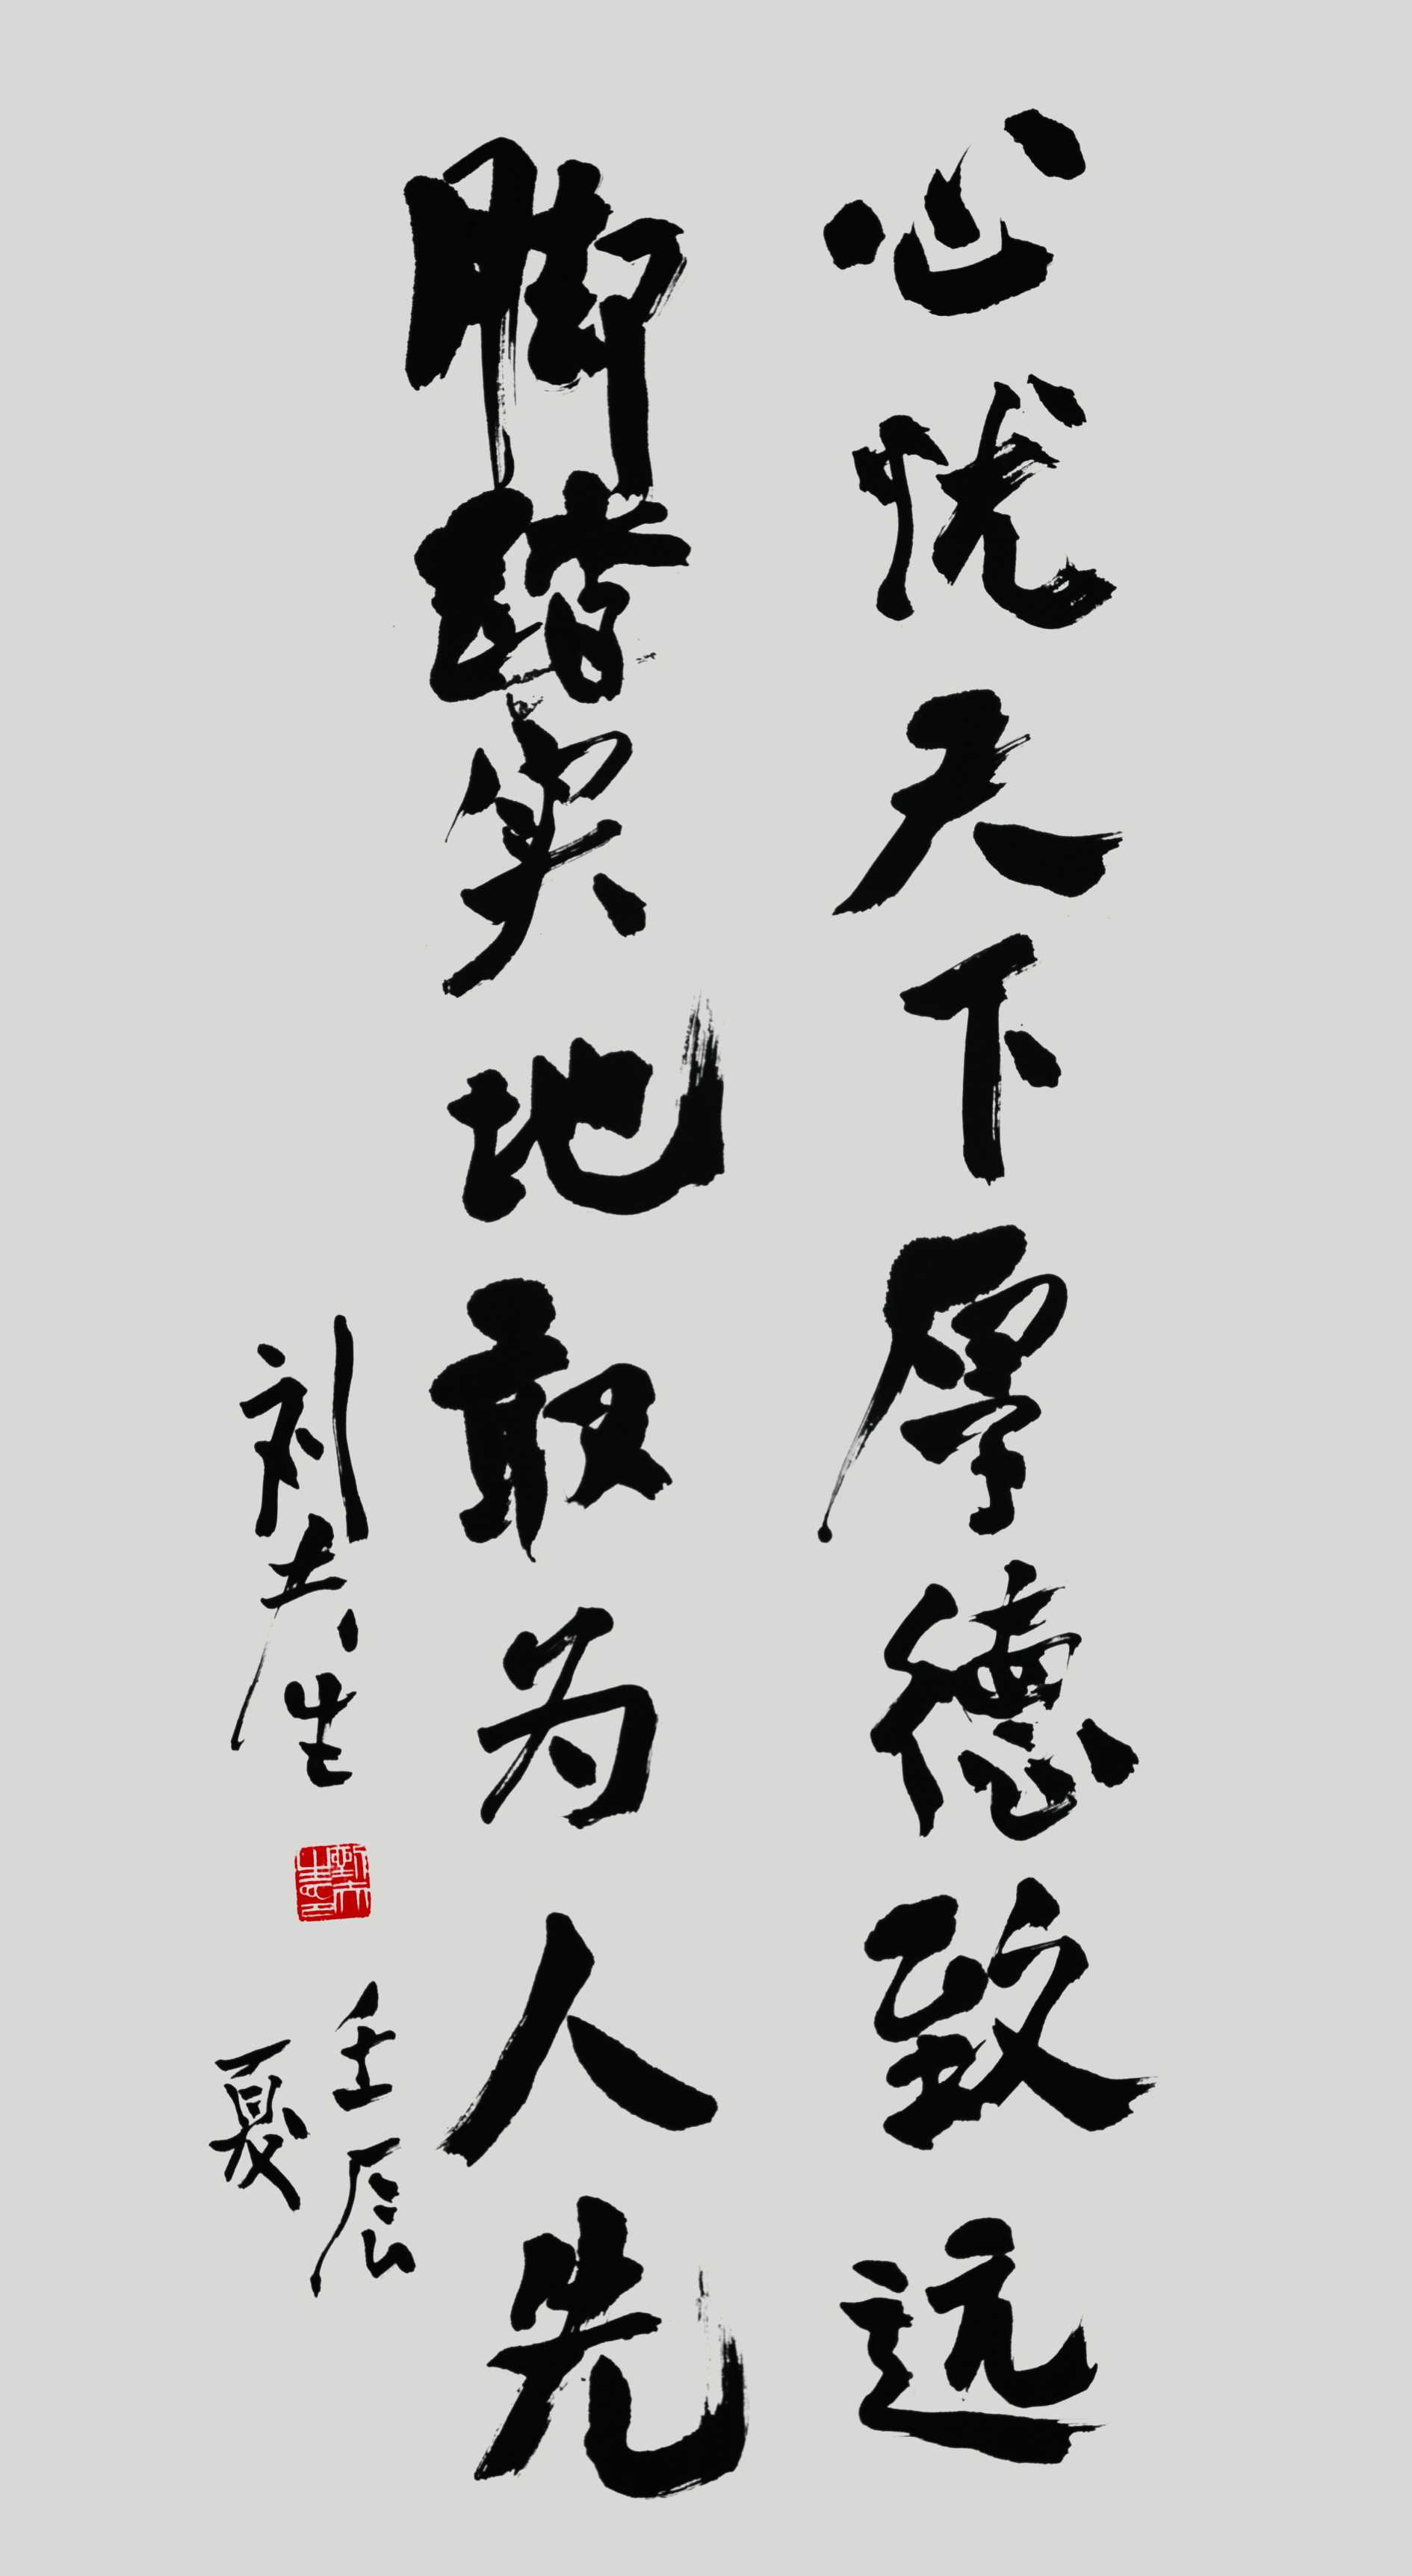 心忧天下厚德致远
脚踏实地敢为人先
刘夫生
壬辰
夏